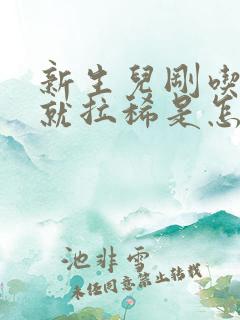 新生兒剛喫
就拉稀是怎
池非雪
未经同意禁止转载